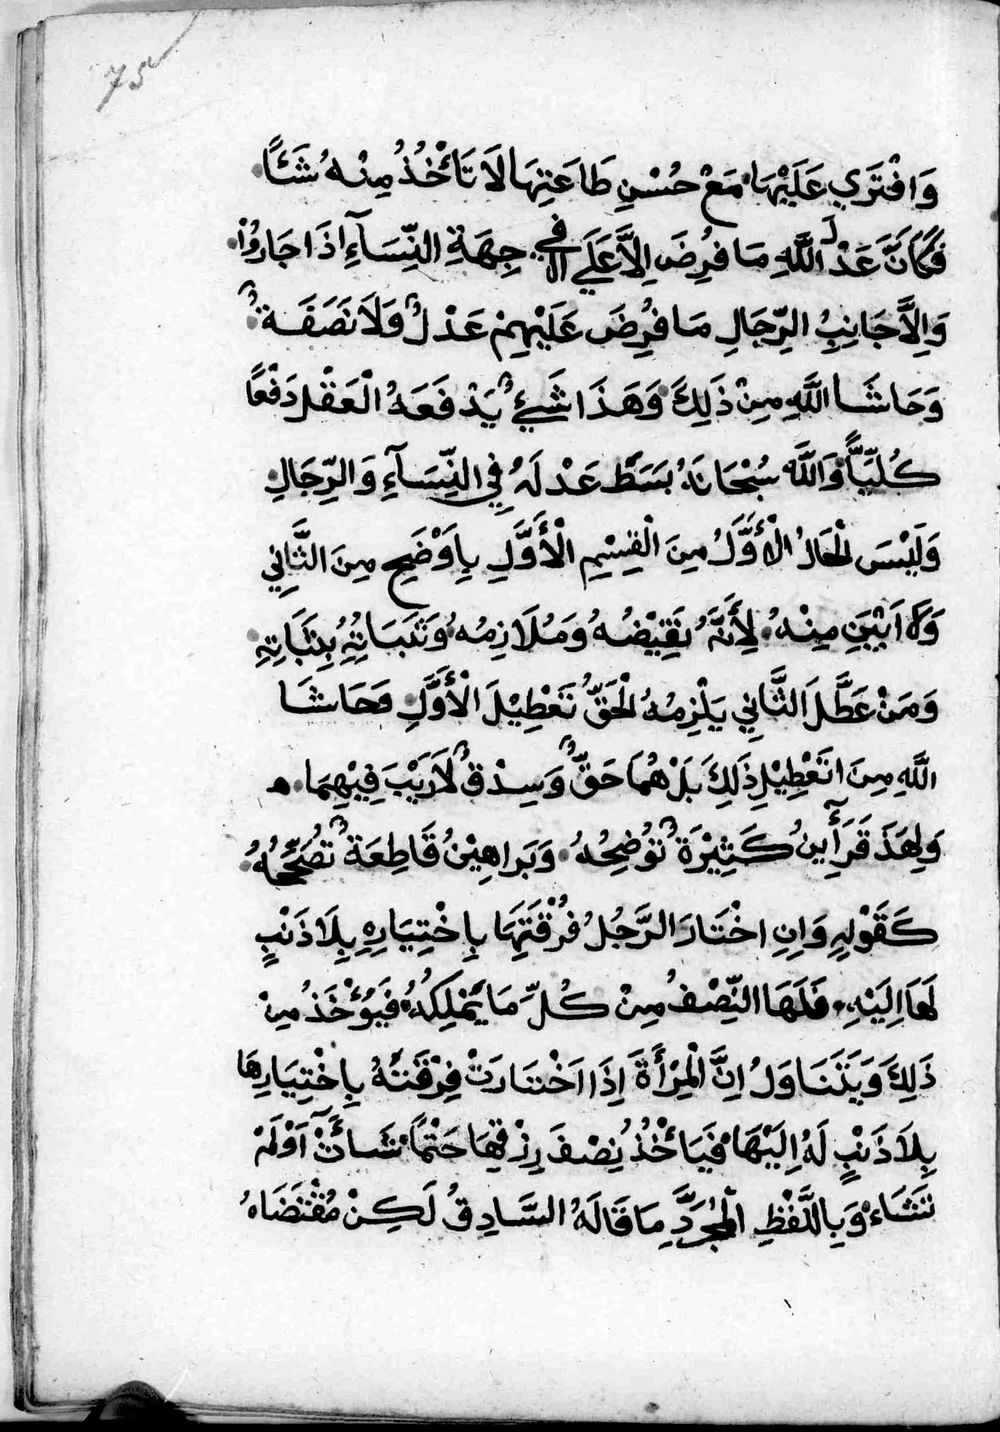 75
وَافْتَرَي عَلَيْهَا مَعْ حُسْنِ طَاعَتِهَا لَا تَأْخُذُ مِنْهُ شَئًا
فَكَانَّ عَدْلَ اللَّهِ مَا فُرِضَ اِلَّا عَلَي في جِهَةِ النِّسَآءِ اذَا جَارُوا
وَاِلَّا جَانِبِ الرِّجَالِ مَا فُرِضَ عَلَيْهِمْ عَدْلٌ وَلَا نَصَفَةٌ
وَحَاشَا اللَّهِ مِنْ ذَلِكَ وَهَذَا شَيْءٌ يَدْفَعَهُ الْعَقْلُ دَفْعًا
كُلِّيًّا وَاللَّه سُبْحَانَهُ بَسَطَ عَدْلَهُ فِي النِّسَآءِ وَالرِّجَالِ
وَلَيْسَ الْحَالُ الْأَوَّلُ مِنَ الْقِسْمِ الْأَوَّلِ بِاَوْضَحِ مِنَ الثَّانِي
وَلَا اَبْيَنِ مِنْهُ لِأَنَّهُ نَقِيْضُهُ وَمُلَازِمُهُ وَثَبَاتِهُ بِثَبَاتِهِ
وَمَنْ عَطَّلَ الثَّانِي يَلْزِمُهُ الْحَقُّ تَعْطِيْلَ الْأَوَّلِ وَحَاشَا
اللَّهِ مِنَ اتَعْطِيْلِ ذَلِكَ بَلْ هُمَا حَقٌّ وَسِدْقٌ لَا رَيْبَ فِيْهِمَا ه
وَلِهَذَ قَرَأَيِنُ كَثِيْرَةٌ تُوْضِحُهُ وَبَرَاهِيْنُ قَاطِعَةٌ تُصَحِّحُهُ
كَقَوْلِهِ وَاِنِ اخْتَارَ الرَّجُلُ فُرْقَتَهَا بِاِخْتِيَارِهِ بِلَا ذَنْبٍ
لَهَا اِلَيْهِ فَلَهَا النِّصْفُ مِنْ كُلِّ مَا يَمْلِكُهُ فَيُؤْخَذُ مِنْ
ذَلِكَ وَيَتَنَاوَلُ اِنَّ الْمِرْأَةَ إِذَا اخْتَارَتْ فِرْقَتَهُ بِاِخْتِيَارِهَا
بِلَا ذَنْبٍ لَهُ اِلَيْهَا فَيَاخُذُ نِصْفَ رِزْقِهَا حَتْمًا شَائَتْ اَوْ لَمْ
تَشَاءْ وَبِاللَّفْظِ الْمُجَرَّدِ مَا قَالَهُ السَّادِقُ لَكِنْ مُقْتَضَاهُ